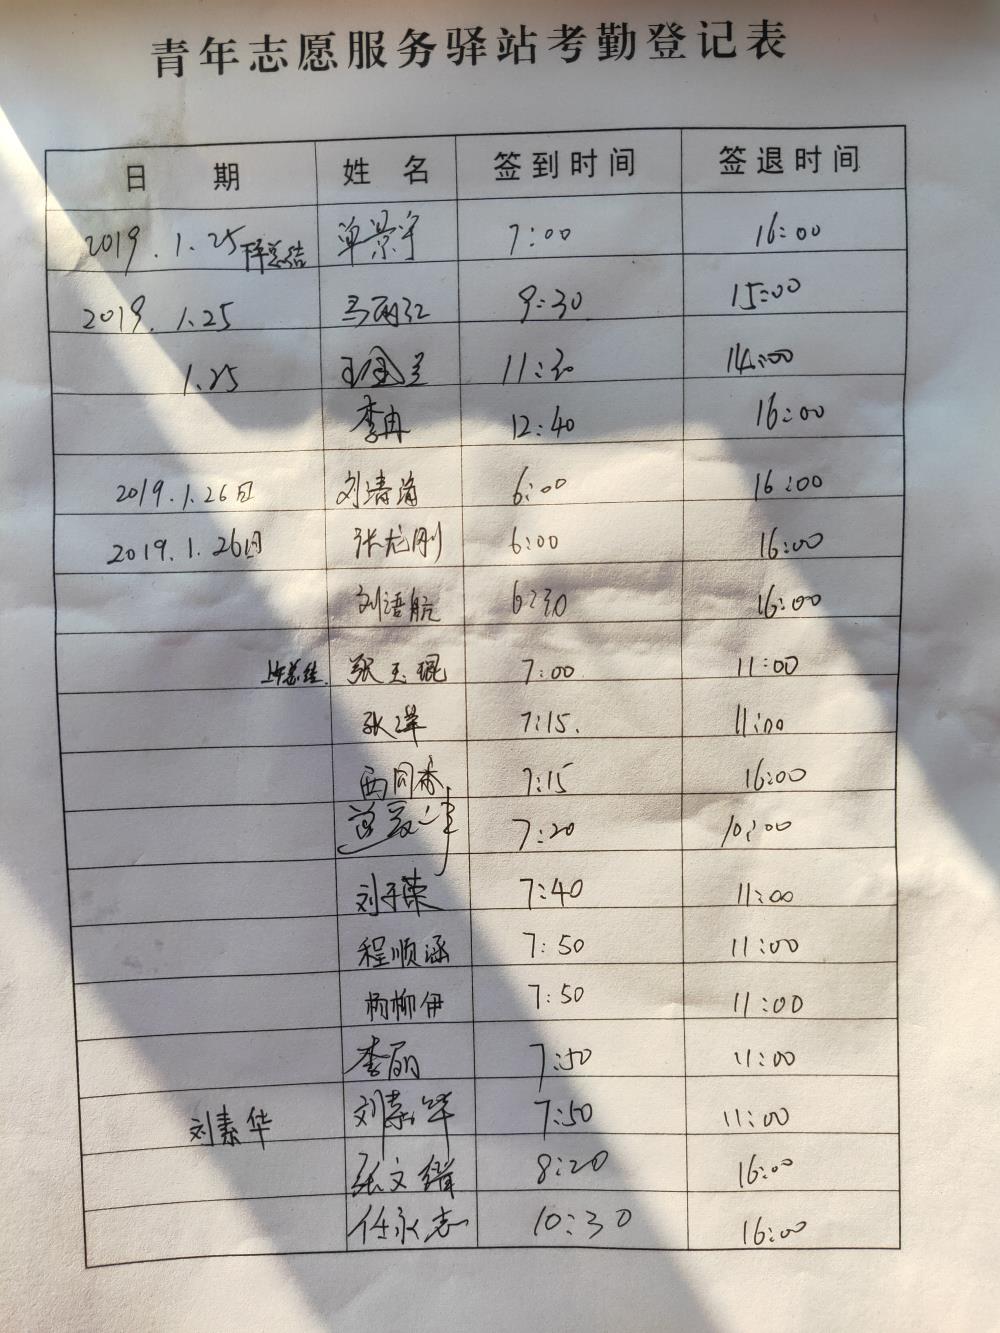 青年志愿服务驿站考勤登记表
日 期 姓 名 签到时间 签退时间
2019.1.25 下午总结 单景宇 7:00 16:00
2019.1.25 马丽红 9:30 15:00
1.25 王金兰 11:30 14:00
李冉 12:40 16:00
2019.1.26日 刘清瀚 6:00 16:00
2019.1.26日 张龙刚 6:00 16:00
刘语航 6:30 16:00
上午总结. 张玉琨 7:00 11:00
张泽 7:15. 11:00
西同春 7:15 16:00
7:20 10:00
刘子荣 7:40 11:00
程顺涵 7:50 11:00
杨柳伊 7:50 11:00
李丽 7:50 11:00
刘素华 刘素华 7:50 11:00
张文 8:20 16:00
任永志 10:30 16:00